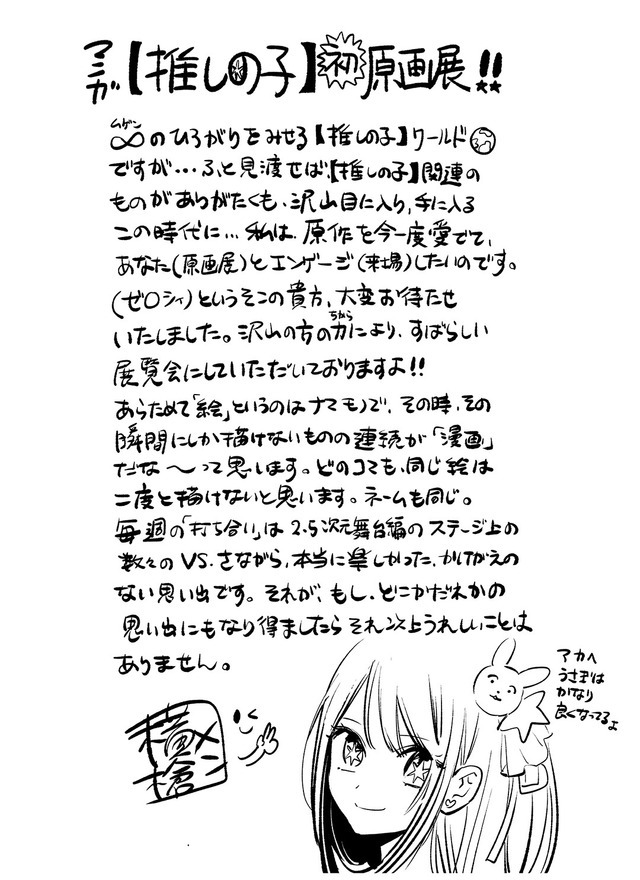 マンガ【推しの子】初原画展!!
∞のひろがりをみせる【推しの子】ワールド
ムゲン
ですが…ふと見渡せば、【推しの子】関連の
ものがありがたくも、沢山目に入り、手に入る
この時代に…私は、原作を今一度愛でて、
あなた(原画展)とエンゲージ(来場)したいのです。
(ゼ〇シィ)というそこの貴方、大変お待たせ
いたしました。沢山の方の力により、すばらしい
ちから
展覧会にしていただいておりますよ!!
あらためて「絵」というのはナマモノで、その時、その
瞬間にしか描けないものの連続が「漫画」
だな〜って思います。どのコマも、同じ絵は
二度と描けないと思います。ネームも同じ。
毎週の「打ち合い」は2.5次元舞台編のステージ上の
数々のVS.さながら、本当に楽しかった、かけがえの
ない思い出です。それが、もし、どこかだれかの
思い出にもなり得ましたらそれ以上うれしいことは
ありません。
アカへ
うさぎは
かなり
良くなってるよ
横槍メンゴ